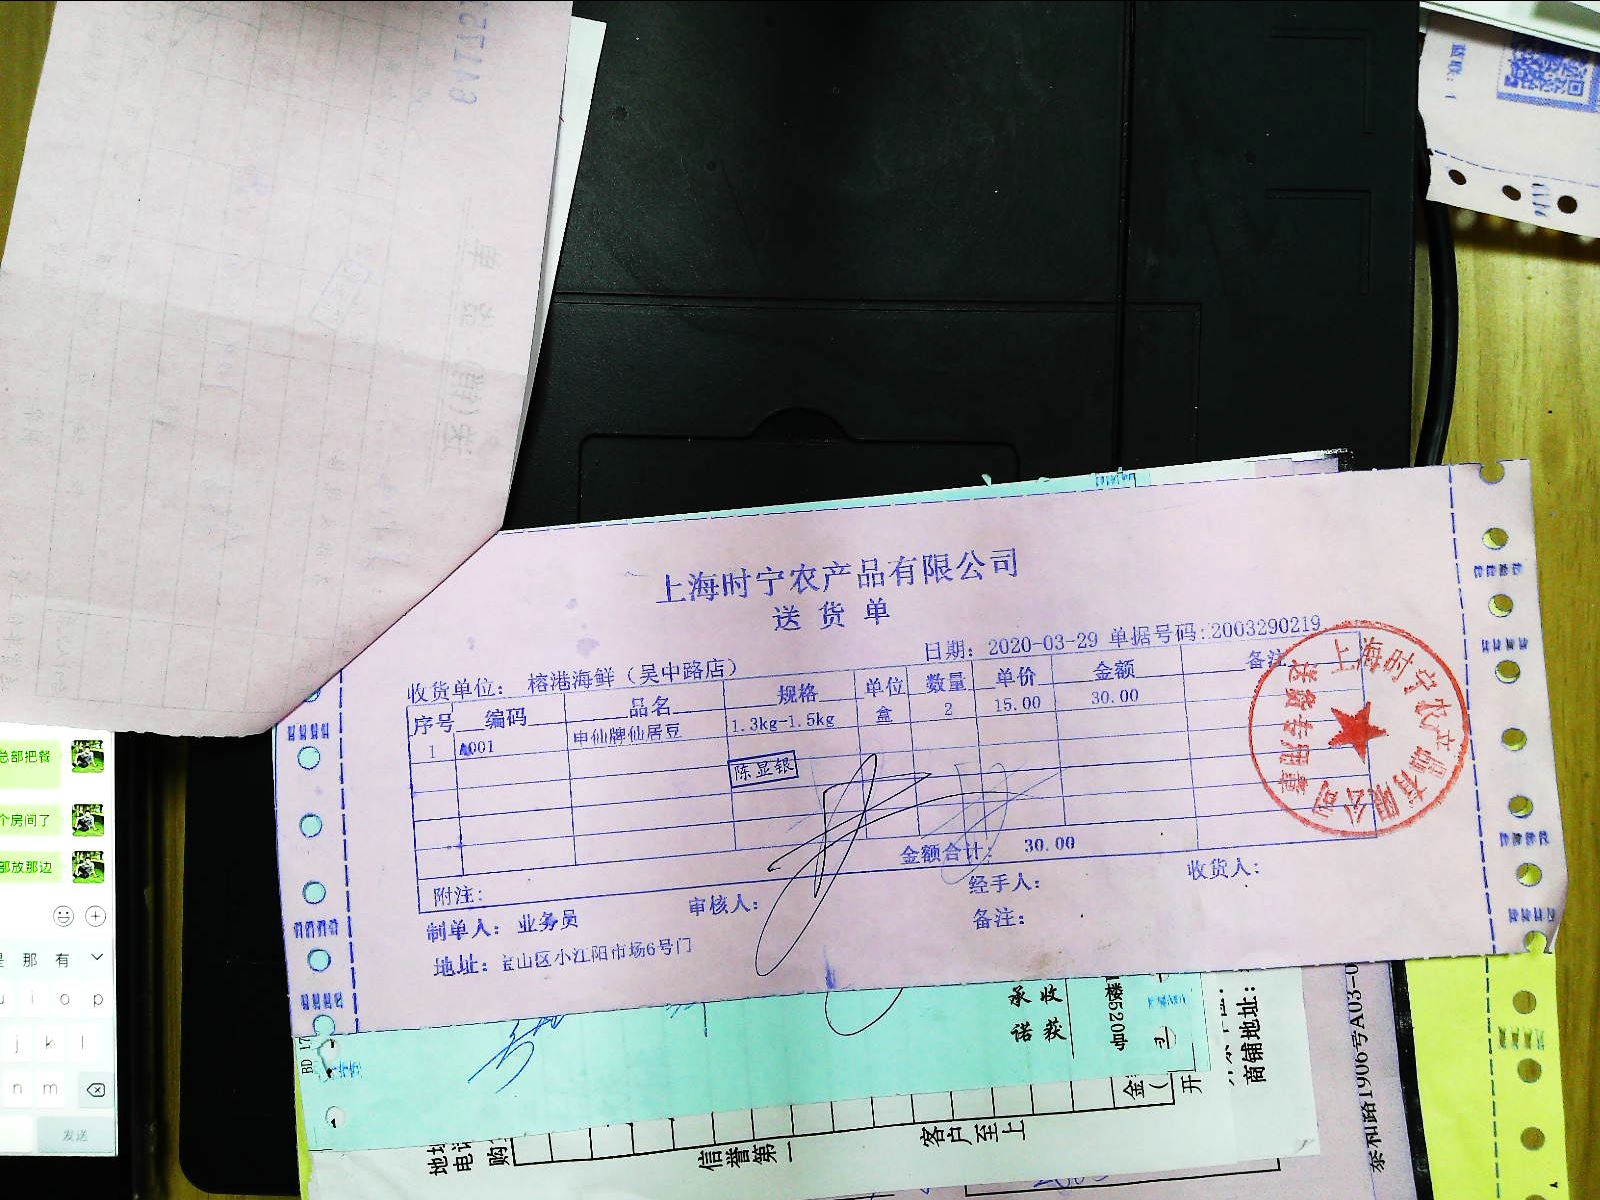 上海时宁农产品有限公司
送 货 单
日期: 2020-03-29 单据号码:2003290219
收货单位: 榕港海鲜（吴中路店）
序号 编码 品名 规格 单位 数量 单价 金额 备注
1 A001 申仙牌仙居豆 1.3kg-1.5kg 盒 2 15.00 30.00
陈显银
金额合计: 30.00
附注:
制单人: 业务员 审核人: 经手人: 收货人:
地址: 宝山区小江阳市场6号门 备注:
上海时宁农产品有限公司
送货专用章
总部把餐
个房间了
部放那边
那 有
u i o p
j k l
n m
发送
承 收
诺 获
楼520单
商铺地址:
泰和路1906号A03-0
信誉第一
客户至上
地址
电话
购